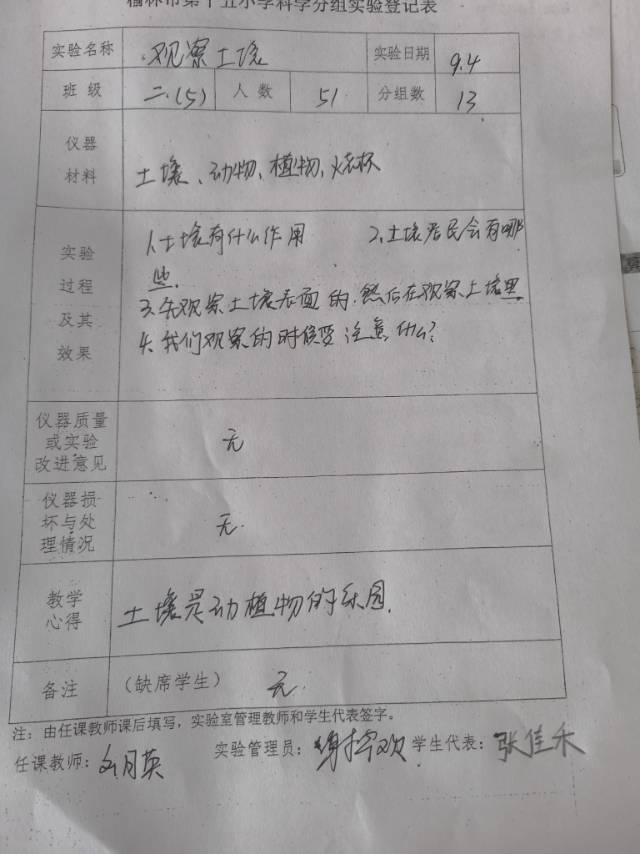 榆林市第十五小学科学分组实验登记表
实验名称 观察土壤 实验日期 9.4
班级 二.(5) 人数 51 分组数 13
仪器
材料
土壤、动物、植物、烧杯
实验
过程
及其
效果
1.土壤有什么作用 2.土壤居民会有哪
些.
3.先观察土壤表面的.然后在观察土壤里
4.我们观察的时候要注意什么?
仪器质量
或实验
改进意见
无
仪器损
坏与处
理情况
无.
教学
心得
土壤是动植物的乐园.
备注 (缺席学生) 无.
注: 由任课教师课后填写, 实验室管理教师和学生代表签字。
任课教师: 刘月英 实验管理员: 学生代表: 张佳禾